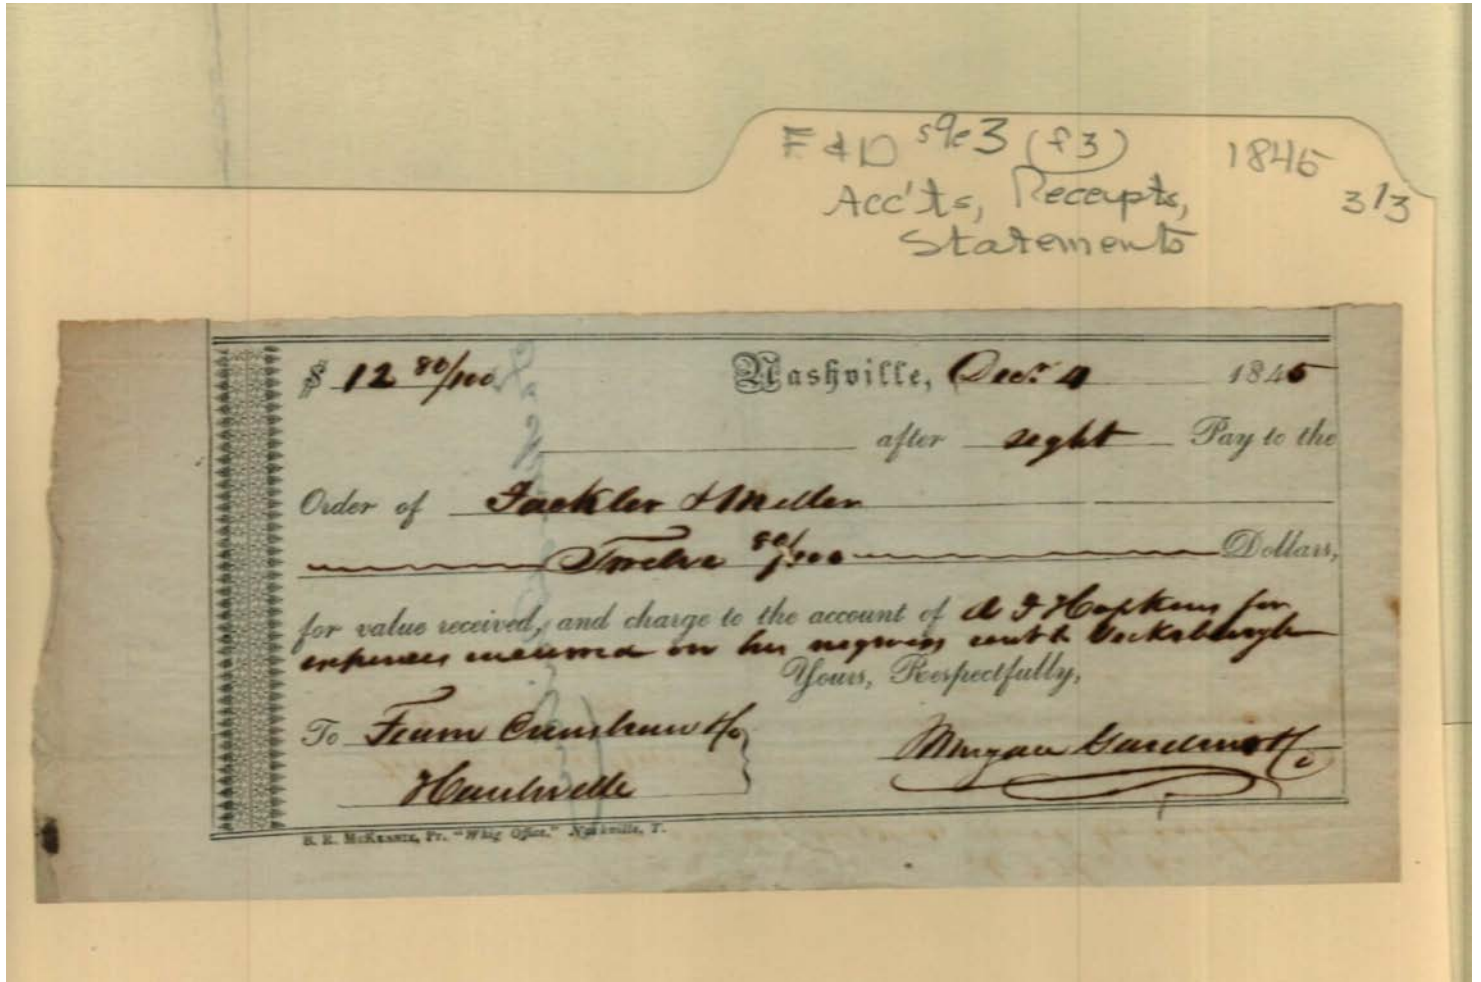 F & D s9e3 (f3) 1845
Acc'ts, Receipts, 3/3
Statements
$ 12 80/100 Nashville, Decr. 4 1845
after sight Pay to the
Order of Fackler & Miller
Twelve 80/100 Dollars,
for value received, and charge to the account of A F Hopkins for
expenses incurred on his negroes sent to Vicksburgh
Yours, Respectfully,
To Fearn Crenshaw & Co
Huntsville
B. R. McKennie, Pr. "Whig Office," Nashville, T.